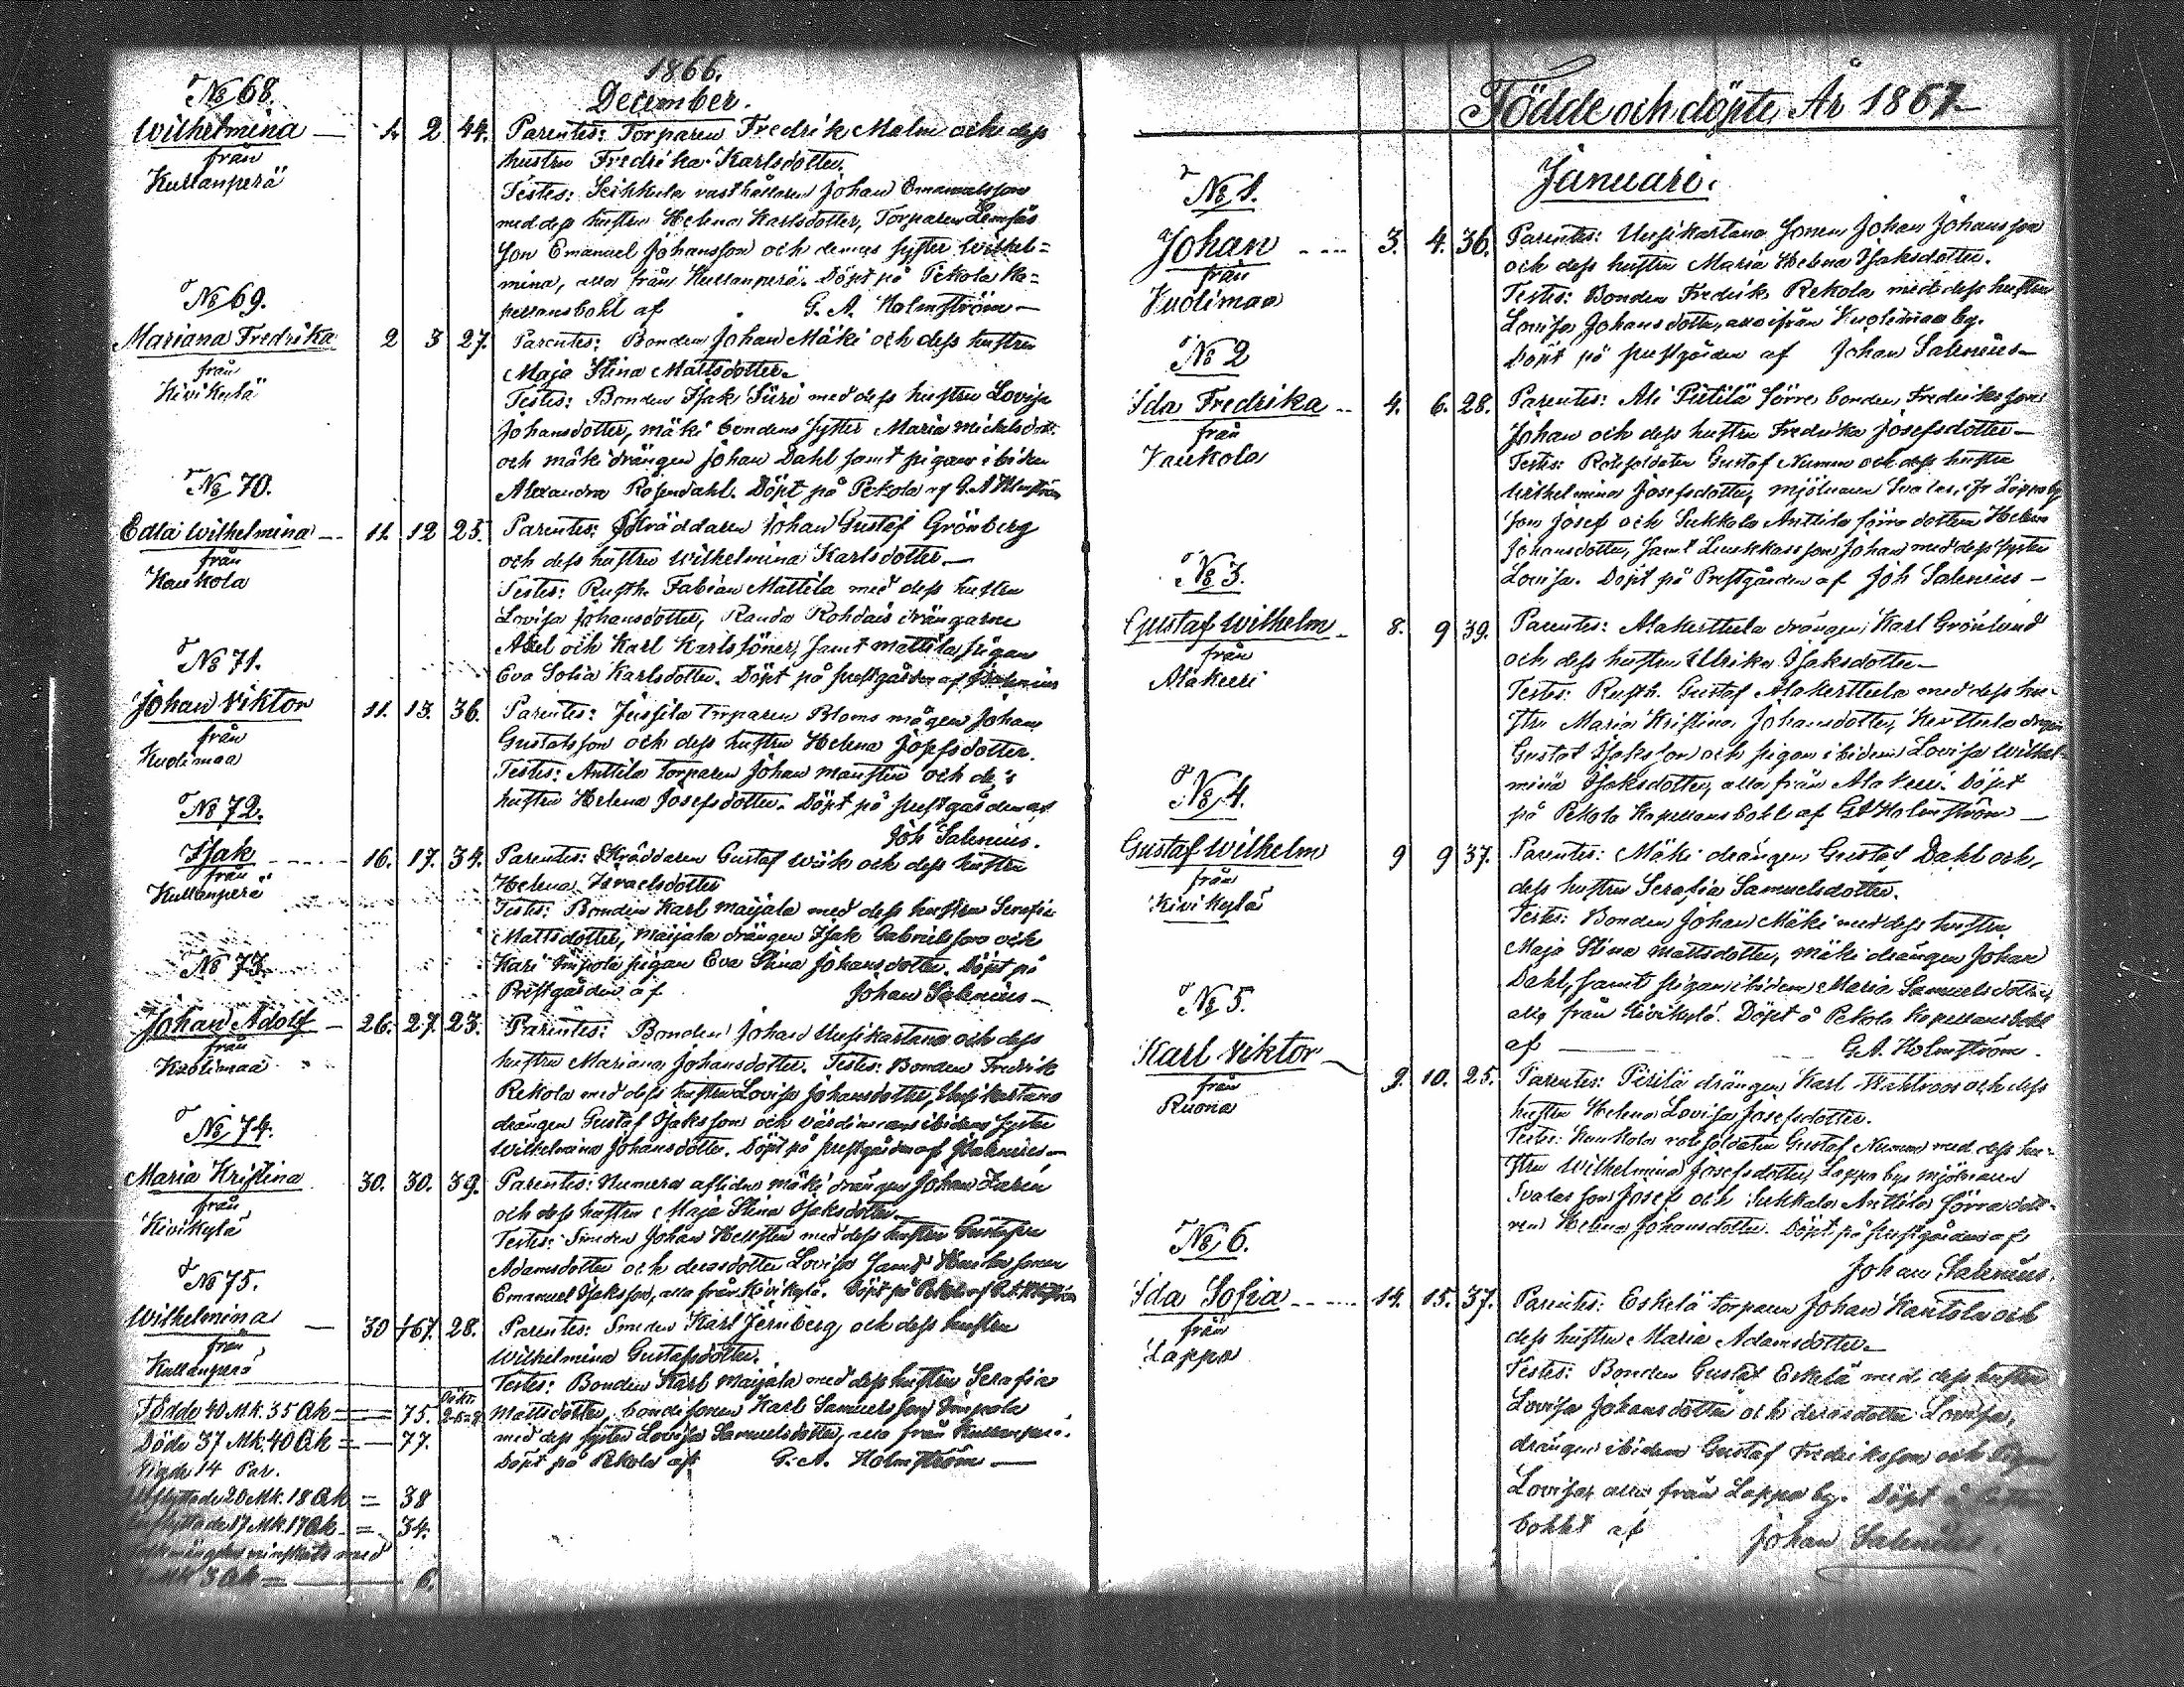 1866.
December.
No 68.
Wilhelmina — 1. 2 44. Parentes: Torparen Fredrik Malm och dess
från
Kullanperä
hustru Fredrika Karlsdotter.
Testes: rusthållaren Johan Emanuelsson
med dess hustru Helena Karlsdotter, Torparen
Son Emanuel Johansson och dennes syster Wilhel=
mina, alla från Kullanperä. Döpt på Pekola Ka=
pellansbohl af G. A. Holmström —
No 69.
Mariana Fredrika 2 3 27. Parentes: Bonden Johan Mäki och dess hustru
från
Kivikylä
Maja Stina Mattsdotter.
Testes: Bonden Isak Siiri med dess hustru Lovisa
Johansdotter, mäki bondens syster Maria Michelsdott.
och mäki drängen Johan Dahl samt pigan ibidem
Alexandra Rosendahl. Döpt på Pekola af G. A. Holmström
No 70.
Edla Wilhelmina — 11. 12 25. Parentes: Skräddaren Johan Gustaf Grönberg
från
Haukola
och dess hustru Wilhelmina Karlsdotter —
Testes: Rusth. Fabian Mattila med dess hustru
Lovisa Johansdotter, Rauda drängarne
Axel och Karl Karlssöner, samt mattila pigan
Eva Sofia Karlsdotter. Döpt på prestgården af J Salenius
No 71.
Johan Viktor 11. 13. 36. Parentes: Jussila torparen Bloms mågen Johan
från
Kuolimaa
Gustafsson och dess hustru Helena Josefsdotter.
Testes: Anttila torparen Johan Manstén och dess
hustru Helena Josefsdotter. Döpt på prestgården af
Joh Salenius.
No 72.
Isak - - - - 16. 17. 34. Parentes: Skräddaren Gustaf Wiik och dess hustru
från
Kullanperä
Helena Israelsdotter
Testes: Bonden Karl Maijala med dess hustru Serafia
Mattsdotter, Maijala drängen Isak Gabrielsson och
Kari Impola pigan Eva Stina Johansdotter. Döpt på
Prestgården af Johan Salenius —
No 73.
Johan Adolf — 26. 27. 23. Parentes: Bonden Johan Uusikartano och dess
från
Kuolimaa
hustru Mariana Johansdotter. Testes: Bonden Fredrik
Rekola med dess hustru Lovisa Johansdotter, Uusikartano
drängen Gustaf Isaksson och värdinnans ibidem syster
Wilhelmina Johansdotter. Döpt på prestgården af J Salenius —
No 74.
Maria Kristina 30. 30. 39. Parentes: Numera aflidne mäki drängen Johan Larén
från
Kivikylä
och dess hustru Maja Stina Isaksdotter —
Testes: Smeden Johan Hellstén med dess hustru Gustafva
Adamsdotter och derasdotter Lovisa samt sonen
Emanuel Isaksson, alla från Kivikylä. Döpt på Pekola af G. A. Holmström
No 75.
Wilhelmina — 30 1/67. 28. Parentes: Smeden Karl Jernberg och dess hustru
från
Kullanperä
Wilhelmina Gustafsdotter.
Testes: Bonden Karl Maijala med dess hustru Serafia
Mattsdotter, bondesonen Karl Samuelsson Impola
med dess syster Lovisa Samuelsdotter, alla från Kullanperä.
Döpt på Pekola af G. A. Holmström —
Födde 40 Mk. 35 Qk = — 75.
Döde 37 Mk. 40 Qk = — 77.
Vigde 14 Par.
20 Mk. 18 Qk = 38
17 Mk. 17 Qk = 34.
minskats med
3 Qk = — 6.
Födde och döpte År 1867
Januari.
No 1.
Johan - - - 3. 4. 36. Parentes: Uusikartano Sonen Johan Johansson
från
Kuolimaa
och dess hustru Maria Helena Isaksdotter.
Testes: Bonden Fredrik Rekola med dess hustru
Lovisa Johansdotter, alla ifrån Kuolimaa by.
Döpt på prestgården af Johan Salenius —
No 2
Ida Fredrika - - 4. 6. 28. Parentes: Ali Pietilä förre bonden Fredriks son
från
Haukola
Johan och dess hustru Fredrika Josefsdotter —
Testes: Rotesoldaten Gustaf Numen och dess hustru
Wilhelmina Josefsdotter, mjölnaren Svalas, ifr Lappa by
son Josef och Sukkala Anttila förre dotter Helena
Johansdotter, samt son Johan med dess syster
Lovisa. Döpt på Prestgården af Joh Salenius —
No 3.
Gustaf Wilhelm 8. 9 39. Parentes: Alakerttula drängen Karl Grönlund
från
Alakeri
och dess hustru Ulrika Isaksdotter —
Testes: Rusth. Gustaf Alakerttula med dess hu-
stru Maria Kristina Johansdotter, Kerttula drängen
Gustaf Isaksson och pigan ibidem Lovisa Wilhel-
mina Isaksdotter, alla från Alakeri. Döpt
på Pekola Kapellansbohl af G A Holmström —
No 4.
Gustaf Wilhelm 9 9 37. Parentes: Mäki drängen Gustaf Dahl och
från
Kivikylä
dess hustru Serafia Samuelsdotter.
Testes: Bonden Johan Mäki med dess hustru
Maja Stina Mattsdotter, mäki drängen Johan
Dahl, samt pigan ibidem Maria Samuelsdotter,
alla från Kivikylä. Döpt å Pekola Kapellansbohl
af — G. A. Holmström.
No 5.
Karl Viktor — 9. 10. 25. Parentes: Pirilä drängen Karl och dess
från
Ruona
hustru Helena Lovisa Josefsdotter.
Testes: Haukola rotesoldaten Gustaf Numen med dess hu-
stru Wilhelmina Josefsdotter, Lappa by mjölnaren
Svalas son Josef och Sukkala Anttila förra dott-
ren Helena Johansdotter. Döpt på Prestgården af
Johan Salenius.
No 6.
Ida Sofia - - - - 14. 15. 37. Parentes: Eskelä torparen Johan Kantola och
från
Lappa
dess hustru Maria Adamsdotter —
Testes: Bonden Gustaf Eskelä med dess hustru
Lovisa Johansdotter och derasdotter Lovisa,
drängen ibidem Gustaf Fredriksson och Pigan
Lovisa, alla från Lappa by. Döpt å
bohlt af Johan Salenius.